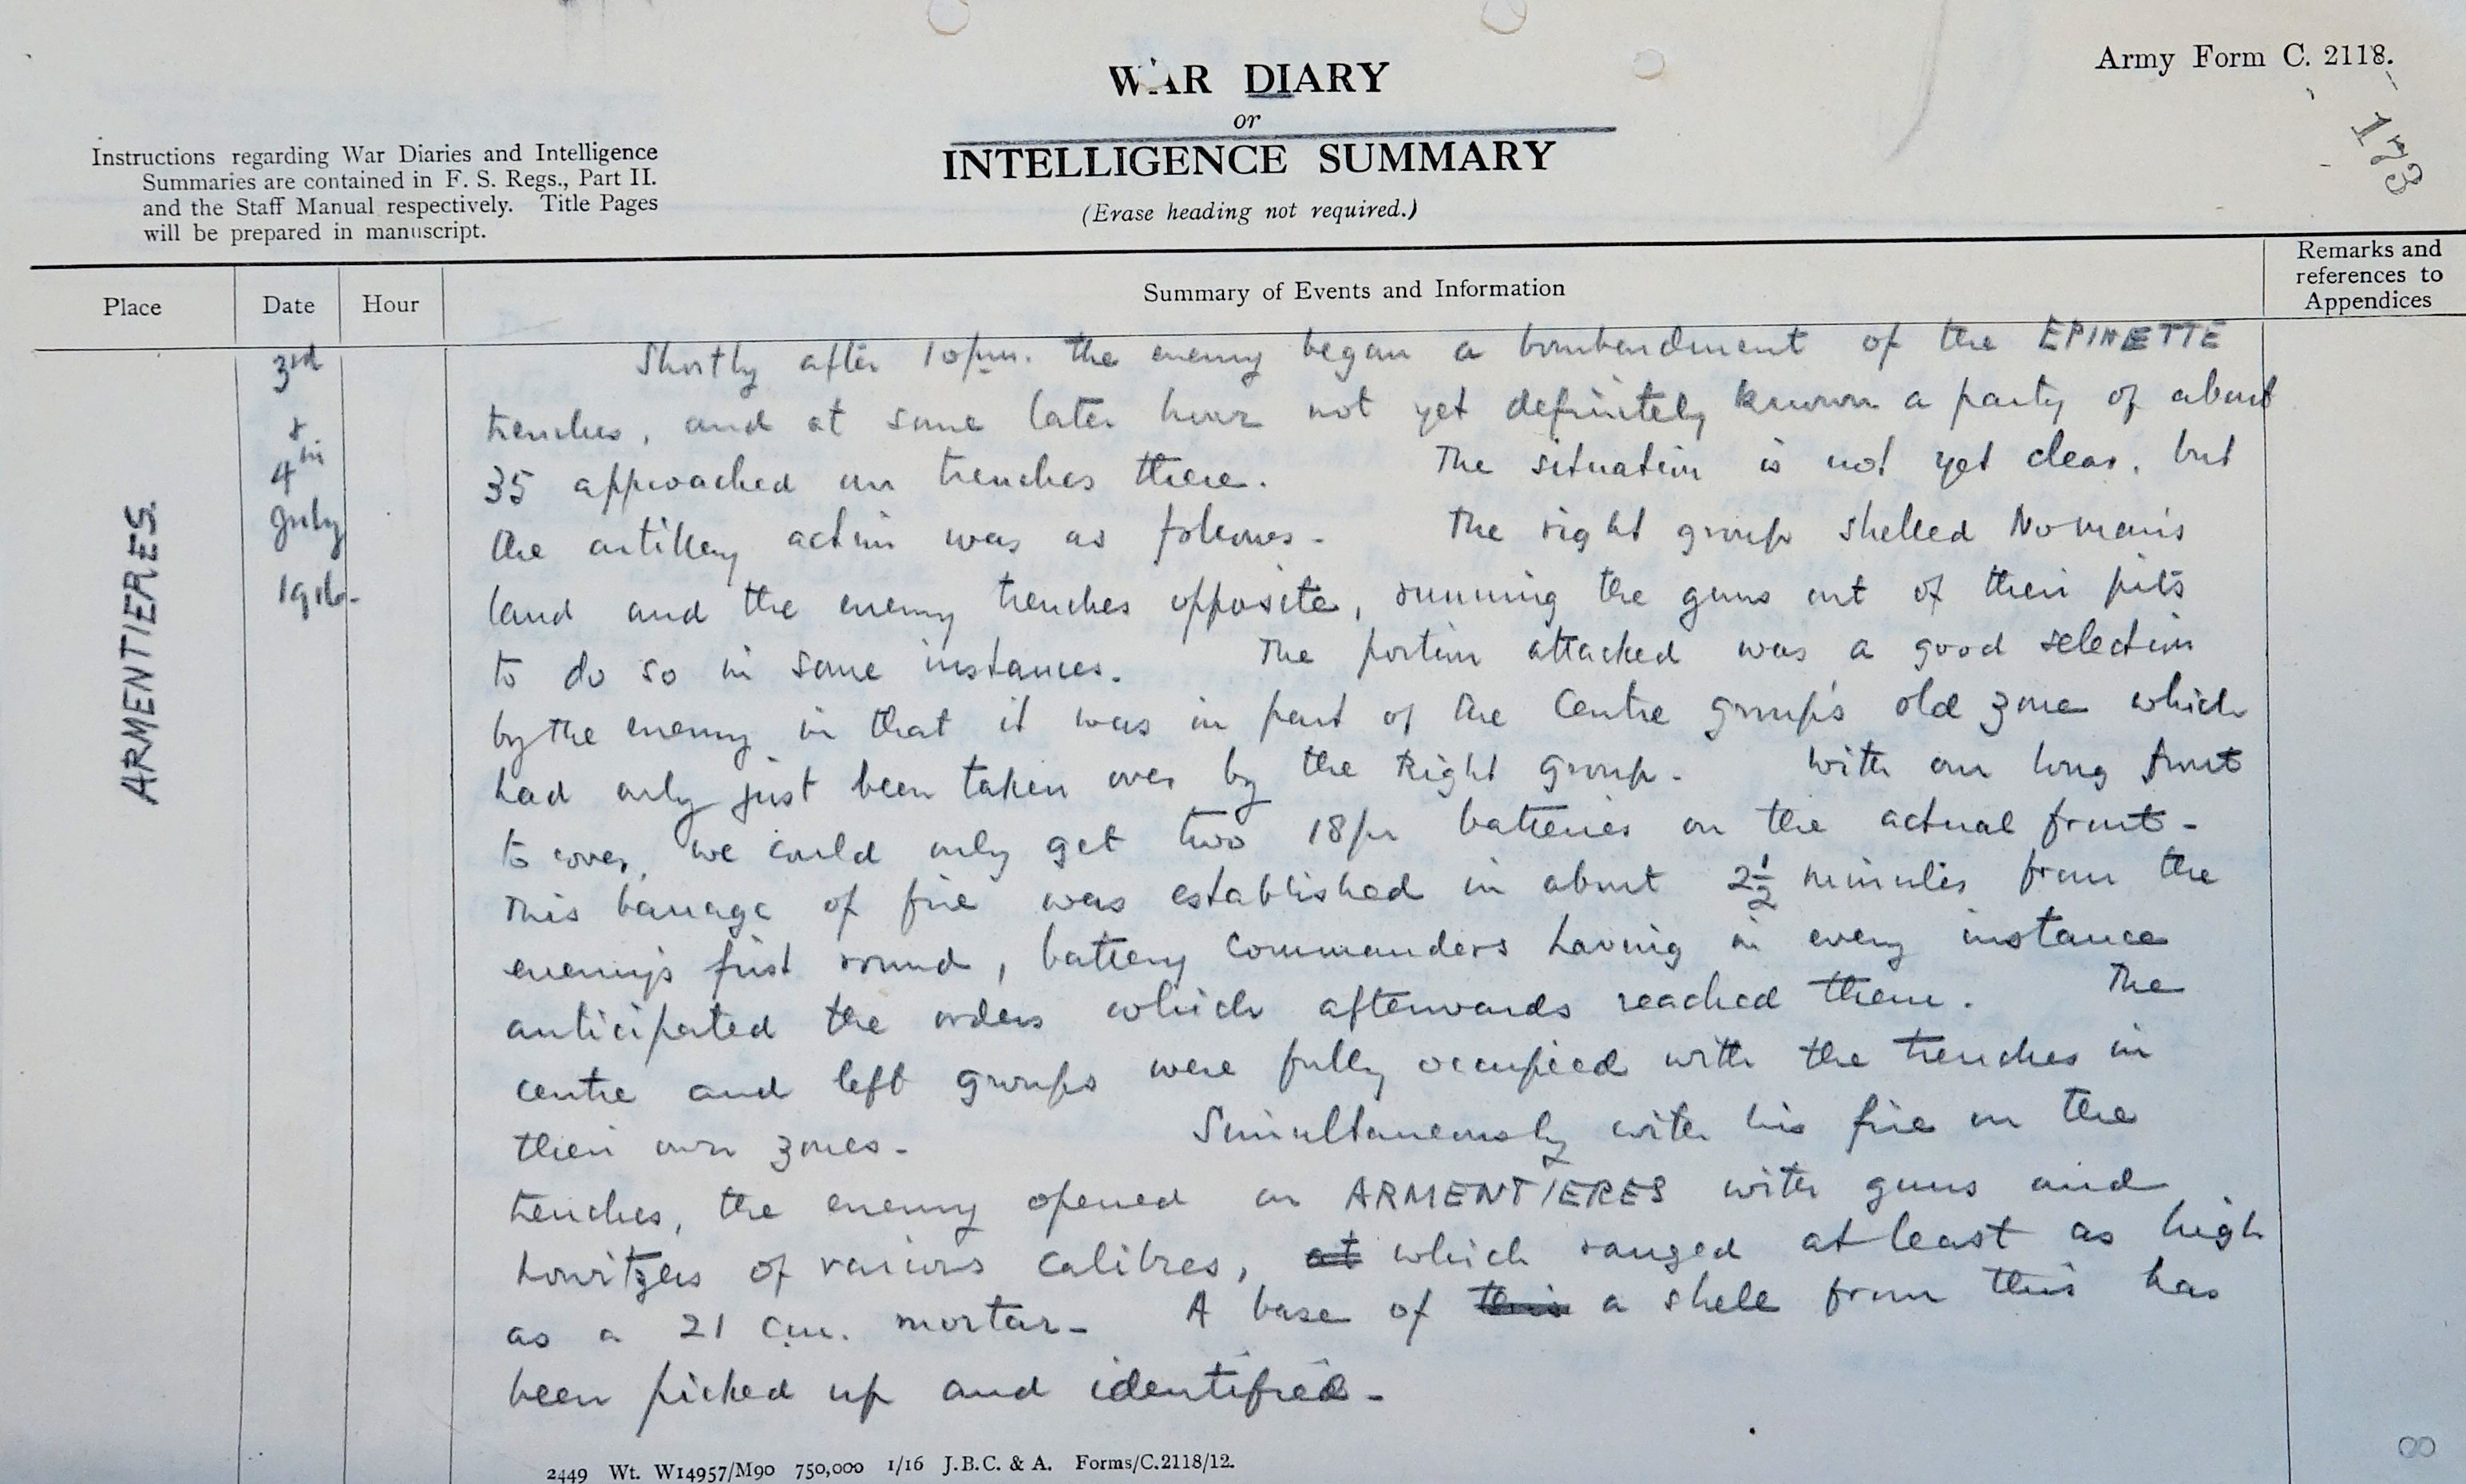 Army Form C. 2118.
173
WAR DIARY
or
INTELLIGENCE SUMMARY
(Erase heading not required.)
Instructions regarding War Diaries and Intelligence
Summaries are contained in F. S. Regs., Part II.
and the Staff Manual respectively. Title Pages
will be prepared in manuscript.
Place
Date
Hour
Summary of Events and Information
Remarks and
references to
Appendices
ARMENTIERES
3rd
&
4th
July
1916.
Shortly after 10 p.m. the enemy began a bombardment of the EPINETTE
trenches, and at some later hour not yet definitely known a party of about
35 approached our trenches there. The situation is not yet clear, but
the artillery action was as follows. The right group shelled No man's
land and the enemy trenches opposite, running the guns out of their pits
to do so in some instances. The portion attacked was a good selection
by the enemy in that it was in part of the Centre group's old zone which
had only just been taken over by the Right Group. With our long front
to cover, we could only get two 18 pr batteries on the actual front.
This barrage of fire was established in about 2½ minutes from the
enemy's first round, battery commanders having in every instance
anticipated the orders which afterwards reached them. The
centre and left groups were fully occupied with the trenches in
their own zones. Simultaneously with his fire on the
trenches, the enemy opened on ARMENTIERES with guns and
howitzers of various calibres, at which ranged at least as high
as a 21 c.m. mortar. A base of this a shell from this has
been picked up and identified.
2449 Wt. W14957/M90 750,000 1/16 J.B.C. & A. Forms/C.2118/12.
8